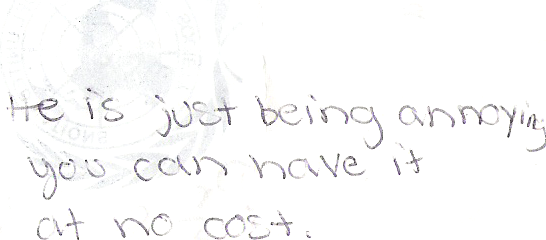 He is just being annoying
you can have it
at no cost.